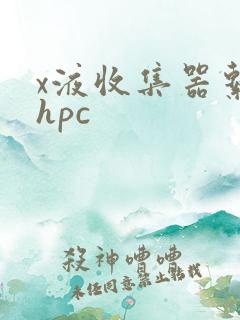 x液收集器
hpc
殺神嘈嘈
未经同意禁止转载